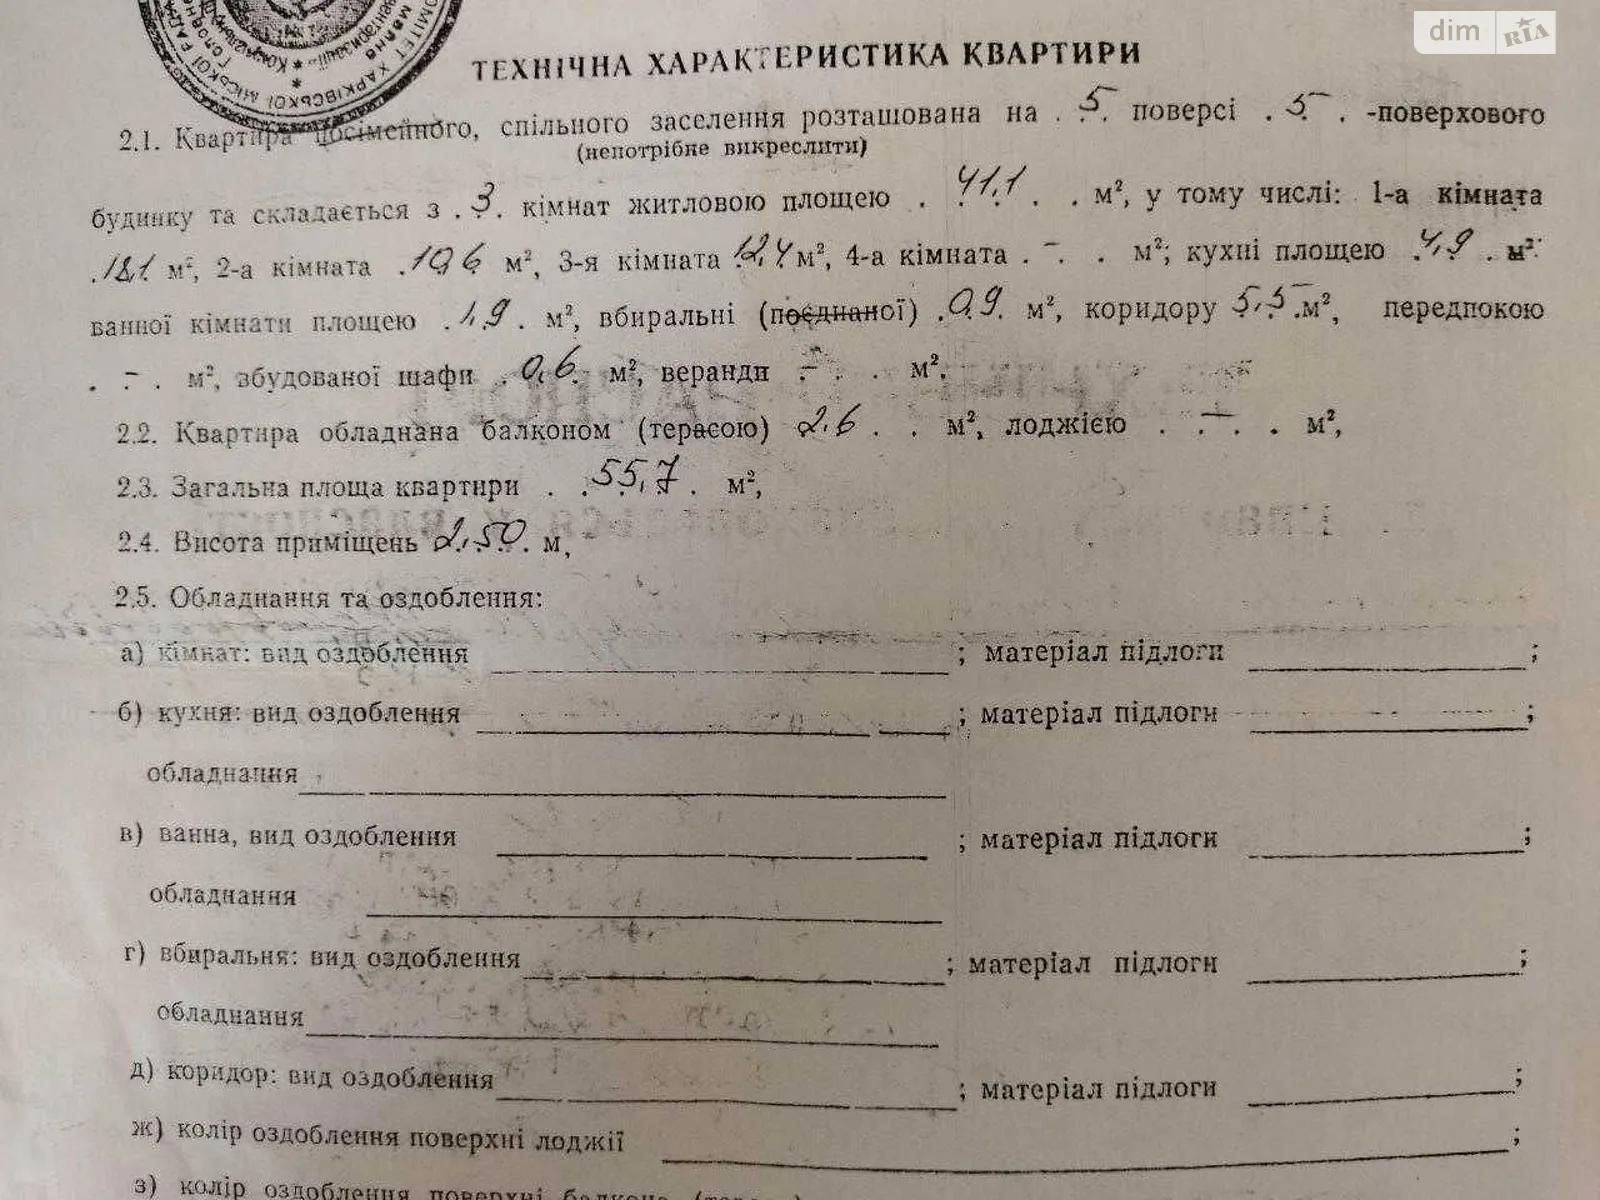 dim RIA
КОМІТЕТ ХАРКІВСЬКОЇ МІСЬКОЇ РАДИ
ТЕХНІЧНА ХАРАКТЕРИСТИКА КВАРТИРИ
2.1. Квартира посімейного, спільного заселення розташована на 5 поверсі 5 -поверхового
(непотрібне викреслити)
будинку та складається з 3 кімнат житловою площею 41,1 м², у тому числі: 1-а кімната
18,1 м², 2-а кімната 10,6 м², 3-я кімната 12,4 м², 4-а кімната – м²; кухні площею 4,9 м²
ванної кімнати площею 1,9 м², вбиральні (поєднаної) 0,9 м², коридору 5,5 м², передпокою
– м², збудованої шафи 0,6 м², веранди – м².
2.2. Квартира обладнана балконом (терасою) 2,6 м², лоджією – м²,
2.3. Загальна площа квартири 55,7 м²,
2.4. Висота приміщень 2,50 м,
2.5. Обладнання та оздоблення:
а) кімнат: вид оздоблення ; матеріал підлоги ;
б) кухня: вид оздоблення ; матеріал підлоги ;
обладнання
в) ванна, вид оздоблення ; матеріал підлоги ;
обладнання
г) вбиральня: вид оздоблення ; матеріал підлоги ;
обладнання
д) коридор: вид оздоблення ; матеріал підлоги ;
ж) колір оздоблення поверхні лоджії ;
з) колір оздоблення поверхні балкона